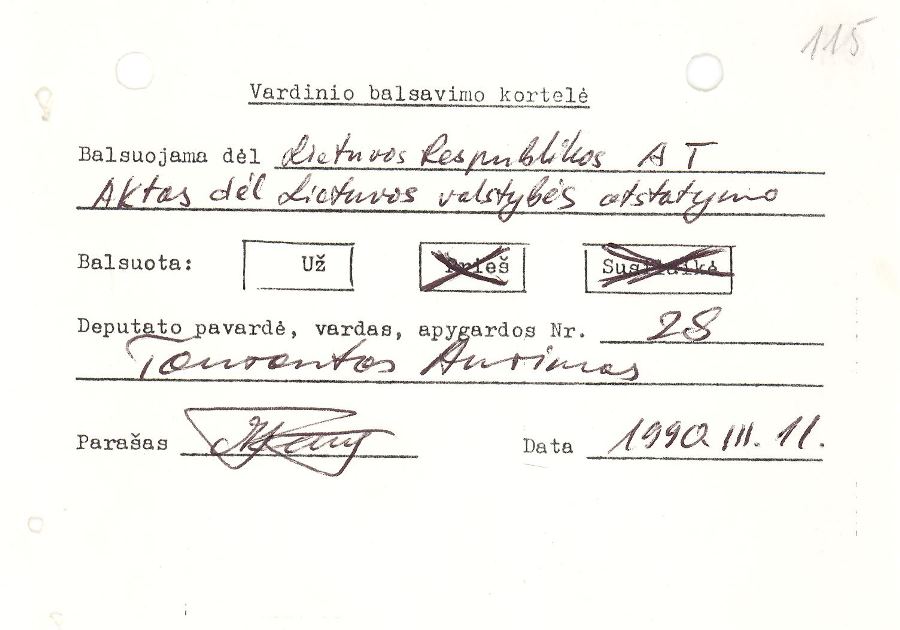 115
Vardinio balsavimo kortelė
Balsuojama dėl Lietuvos Respublikos AT
Aktas dėl Lietuvos valstybės atstatymo
Balsuota: Už Prieš Susilaikė
Deputato pavardė, vardas, apygardos Nr. 28
Taurantas Aurimas
Parašas Data 1990. III. 11.